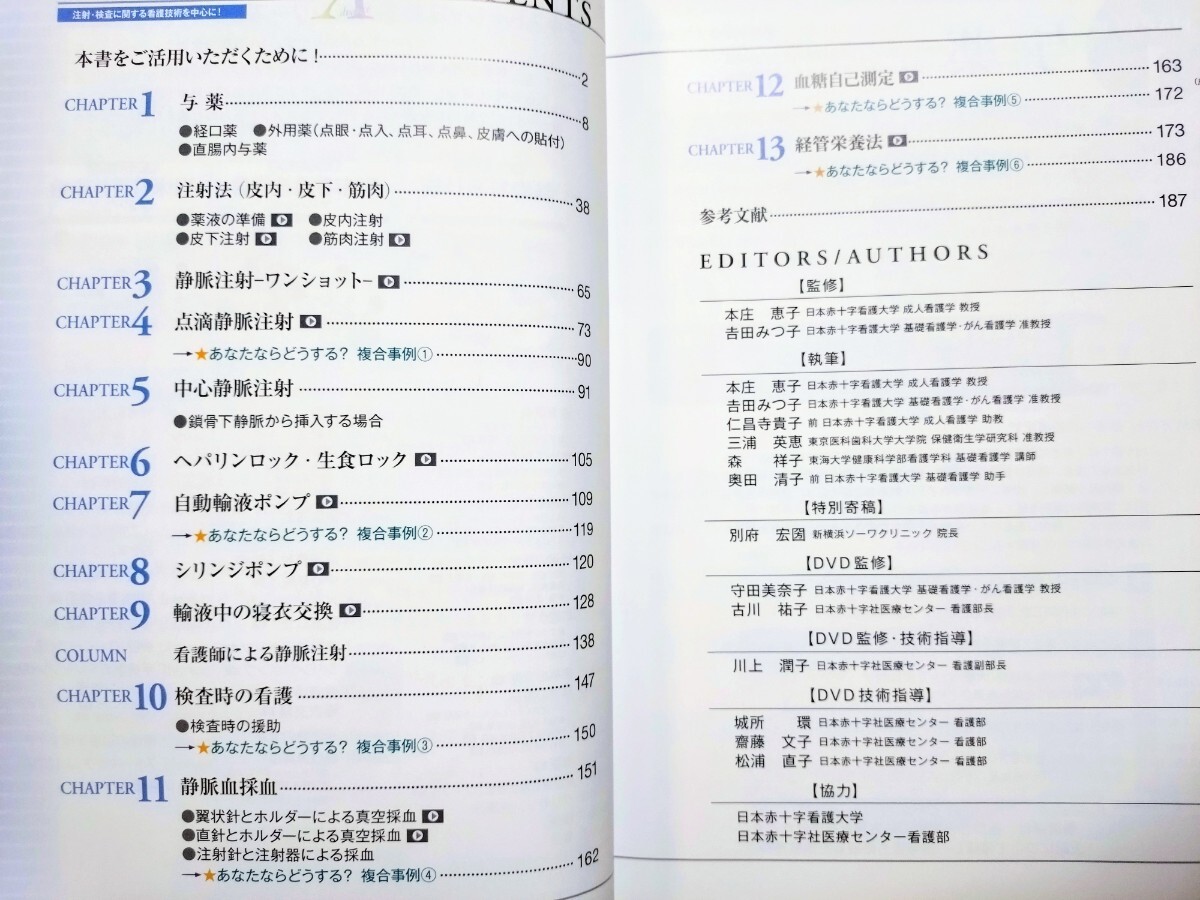 注射・検査に関する看護技術を中心に!
本書をご活用いただくために!……2
CHAPTER1 与薬……8
●経口薬 ●外用薬(点眼・点入、点耳、点鼻、皮膚への貼付)
●直腸内与薬
CHAPTER2 注射法(皮内・皮下・筋肉)……38
●薬液の準備 ●皮内注射
●皮下注射 ●筋肉注射
CHAPTER3 静脈注射−ワンショット−……65
CHAPTER4 点滴静脈注射……73
→★あなたならどうする? 複合事例①……90
CHAPTER5 中心静脈注射……91
●鎖骨下静脈から挿入する場合
CHAPTER6 ヘパリンロック・生食ロック……105
CHAPTER7 自動輸液ポンプ……109
→★あなたならどうする? 複合事例②……119
CHAPTER8 シリンジポンプ……120
CHAPTER9 輸液中の寝衣交換……128
COLUMN 看護師による静脈注射……138
CHAPTER10 検査時の看護……147
●検査時の援助
→★あなたならどうする? 複合事例③……150
CHAPTER11 静脈血採血……151
●翼状針とホルダーによる真空採血
●直針とホルダーによる真空採血
●注射針と注射器による採血
→★あなたならどうする? 複合事例④……162
CHAPTER12 血糖自己測定……163
→★あなたならどうする? 複合事例⑤……172
CHAPTER13 経管栄養法……173
→★あなたならどうする? 複合事例⑥……186
参考文献……187
EDITORS/AUTHORS
【監修】
本庄 恵子 日本赤十字看護大学 成人看護学 教授
𠮷田みつ子 日本赤十字看護大学 基礎看護学・がん看護学 准教授
【執筆】
本庄 恵子 日本赤十字看護大学 成人看護学 教授
𠮷田みつ子 日本赤十字看護大学 基礎看護学・がん看護学 准教授
仁昌寺貴子 前 日本赤十字看護大学 成人看護学 助教
三浦 英恵 東京医科歯科大学大学院 保健衛生学研究科 准教授
森 祥子 東海大学健康科学部看護学科 基礎看護学 講師
奥田 清子 前 日本赤十字看護大学 基礎看護学 助手
【特別寄稿】
別府 宏圀 新横浜ソーワクリニック 院長
【DVD監修】
守田美奈子 日本赤十字看護大学 基礎看護学・がん看護学 教授
古川 祐子 日本赤十字社医療センター 看護部長
【DVD監修・技術指導】
川上 潤子 日本赤十字社医療センター 看護副部長
【DVD技術指導】
城所 環 日本赤十字社医療センター 看護部
齋藤 文子 日本赤十字社医療センター 看護部
松浦 直子 日本赤十字社医療センター 看護部
【協力】
日本赤十字看護大学
日本赤十字社医療センター看護部